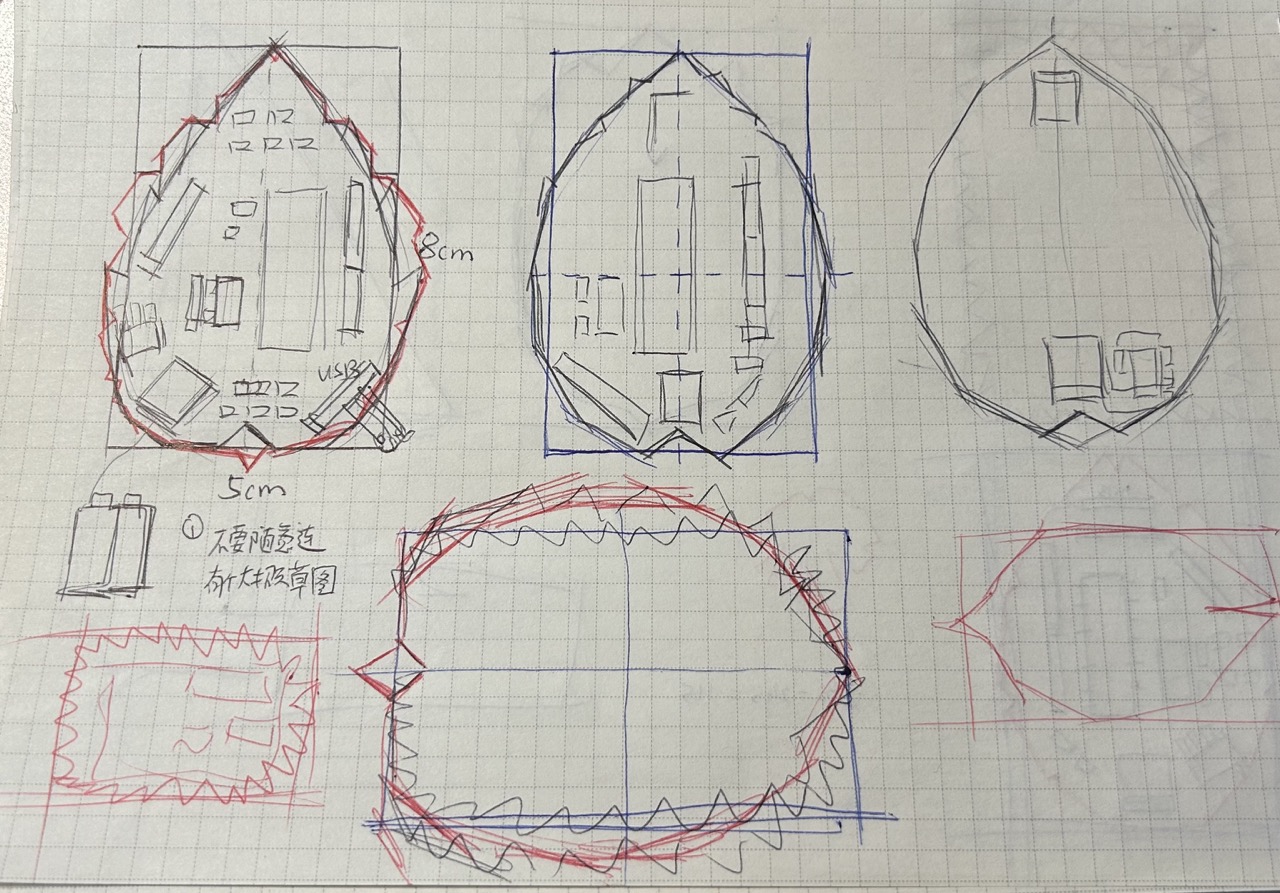 8cm
USB
5cm
① 不要随意连
有个大概草图